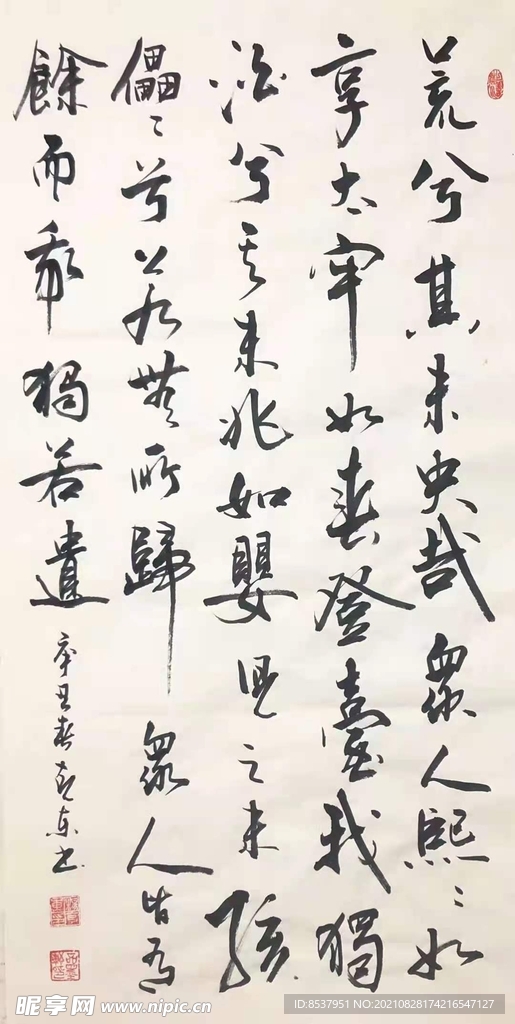 荒兮其未央哉眾人熙〻如
享太牢如春登臺我獨
泊兮其未兆如嬰兒之未孩
儡〻兮若無所歸眾人皆有
餘而我獨若遺
辛丑春東書
昵享网 www.nipic.cn
ID:8537951 NO:20210828174216547127